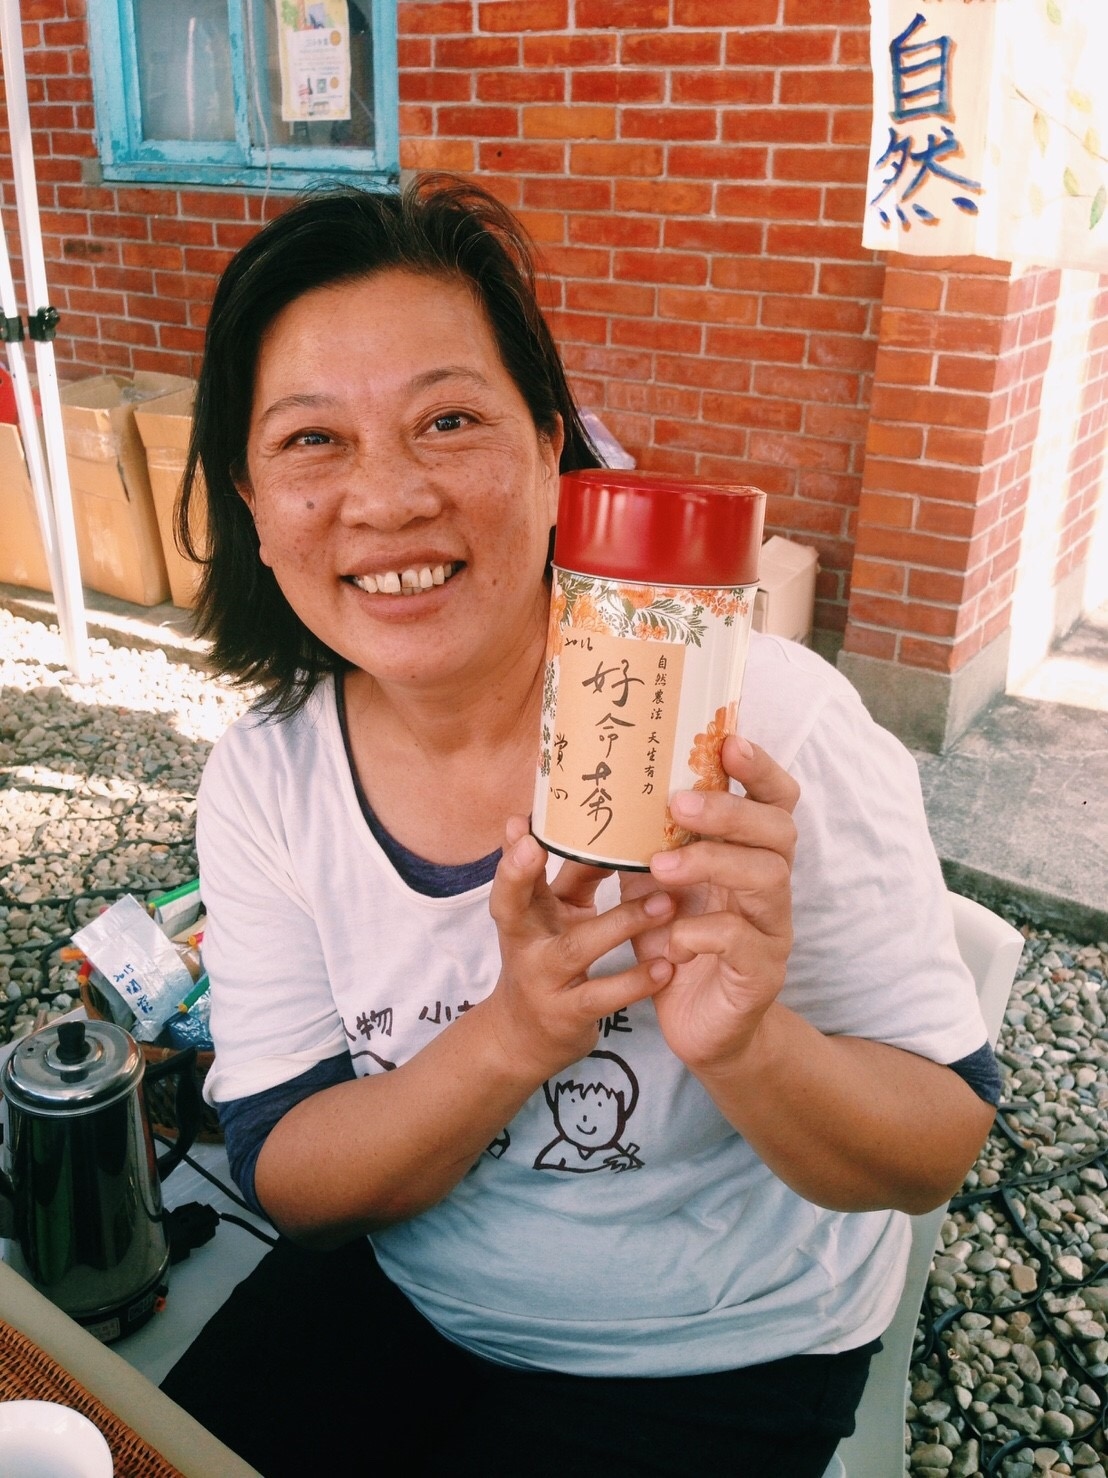 自然
2016
好命茶
自然農法 天生有力
賞心
2015
人物 小